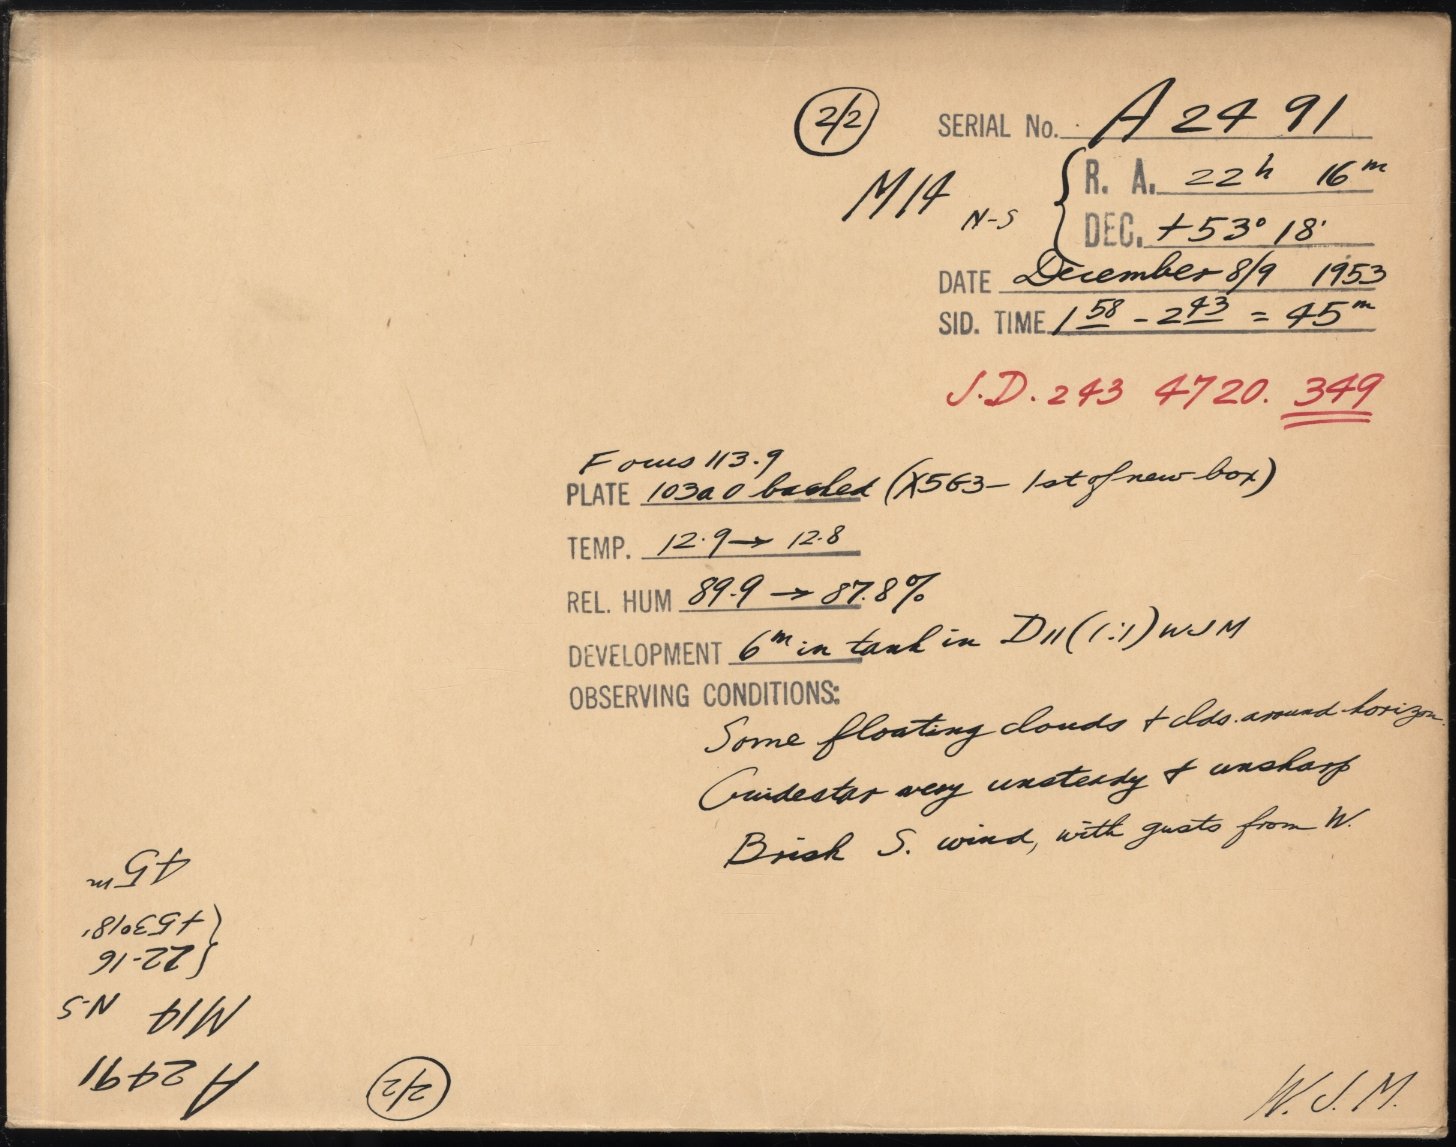 2/2
SERIAL No. A 2491
M14 N-S
R. A. 22h 16m
DEC. +53° 18'
DATE December 8/9 1953
SID. TIME 1 58 - 2 43 = 45m
J.D. 243 4720. 349
Focus 113.9
PLATE 103a O backed (X563 - 1st of new box)
TEMP. 12.9 → 12.8
REL. HUM 89.9 → 87.8%
DEVELOPMENT 6m in tank in D11 (1:1) WJM
OBSERVING CONDITIONS:
Some floating clouds + clds. around horizon.
Guidestar very unsteady + unsharp
Brisk S. wind, with gusts from W.
W. J. M.
2/2
A 2491
M14 N-S
22-16
+53°18'
45m